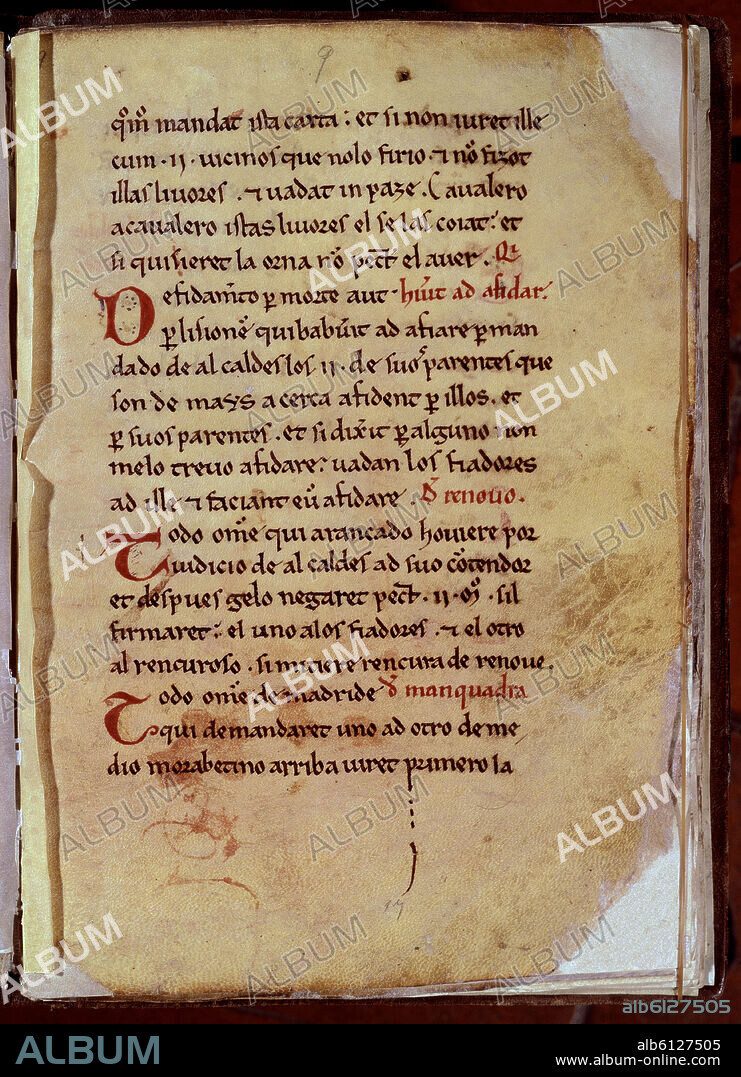 9
qͦmͦ mandat ista carta : et si non iuret ille
cum · ii · vicinos que nolo firio · ⁊ nͦ fizot
illas livores . ⁊ vadat in paze . Cavalero
a cavalero istas livores el se las coiat : et
si quisieret la orna nͦ pect̄ el aver . Qi
De fidam̄to ꝑ morte aut · hiu̅t ad afidar .
ꝑ lisione̅ qui babu̅it ad afiare ꝑ man
dado de al caldes los ii · de suos parentes que
son de mays a cerca afident ꝑ illos . et
ꝑ suos parentes . et si dix̄it ꝑ alguno non
me lo trevo afidare : vadan los fiadores
ad ille ⁊ faciant eu̅ afidare . D̄ renovo .
Todo om̄e qui arancado hoviere por
iuidicio de al caldes ad suo co̅tendor
et despues gelo negaret pect̄ · ii · mͦ · sil
firmaret : el uno a los fiadores . ⁊ el otro
al rencuroso . si miciere rencura de renove .
Todo om̄e de madride D̄ manquadra
qui demandaret uno ad otro de me
dio morabetino arriba iuret primero la
17
alb6127505
ALBUM
alb6127505
www.album-online.com